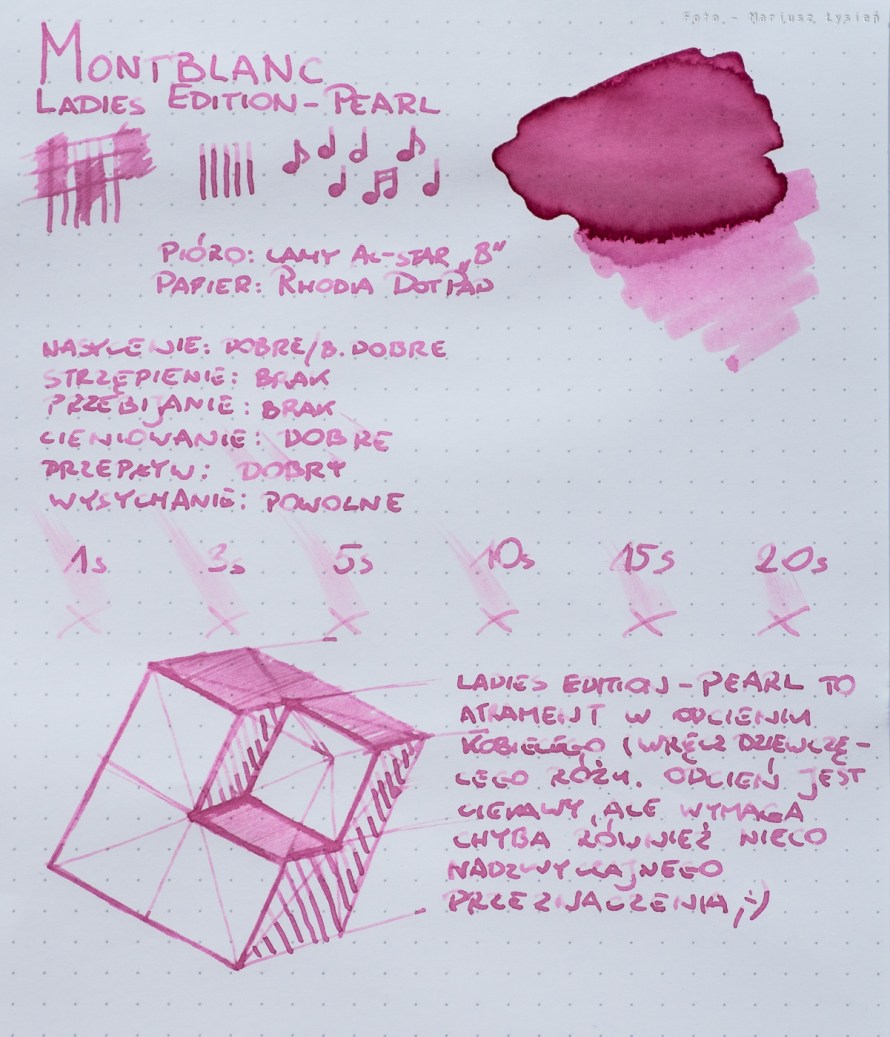 Foto - Mariusz Łysień
MONTBLANC
LADIES EDITION - PEARL
PIÓRO: LAMY AL-STAR „B”
PAPIER: RHODIA DOTPAD
NASYCENIE: DOBRE/B. DOBRE
STRZĘPIENIE: BRAK
PRZEBIJANIE: BRAK
CIENIOWANIE: DOBRE
PRZEPŁYW: DOBRY
WYSYCHANIE: POWOLNE
1s 3s 5s 10s 15s 20s
LADIES EDITION - PEARL TO
ATRAMENT W ODCIENIU
KOBIECEGO (WRĘCZ DZIEWCZĘ-
CEGO RÓŻU. ODCIEŃ JEST
CIEKAWY, ALE WYMAGA
CHYBA RÓWNIEŻ NIECO
NADZWYCZAJNEGO
PRZEZNACZENIA ;-)